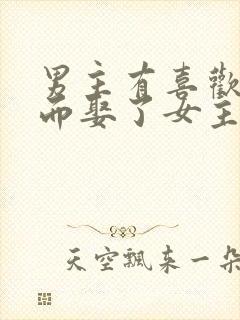 男主有喜歡
而娶了女主
天空飄来一朵